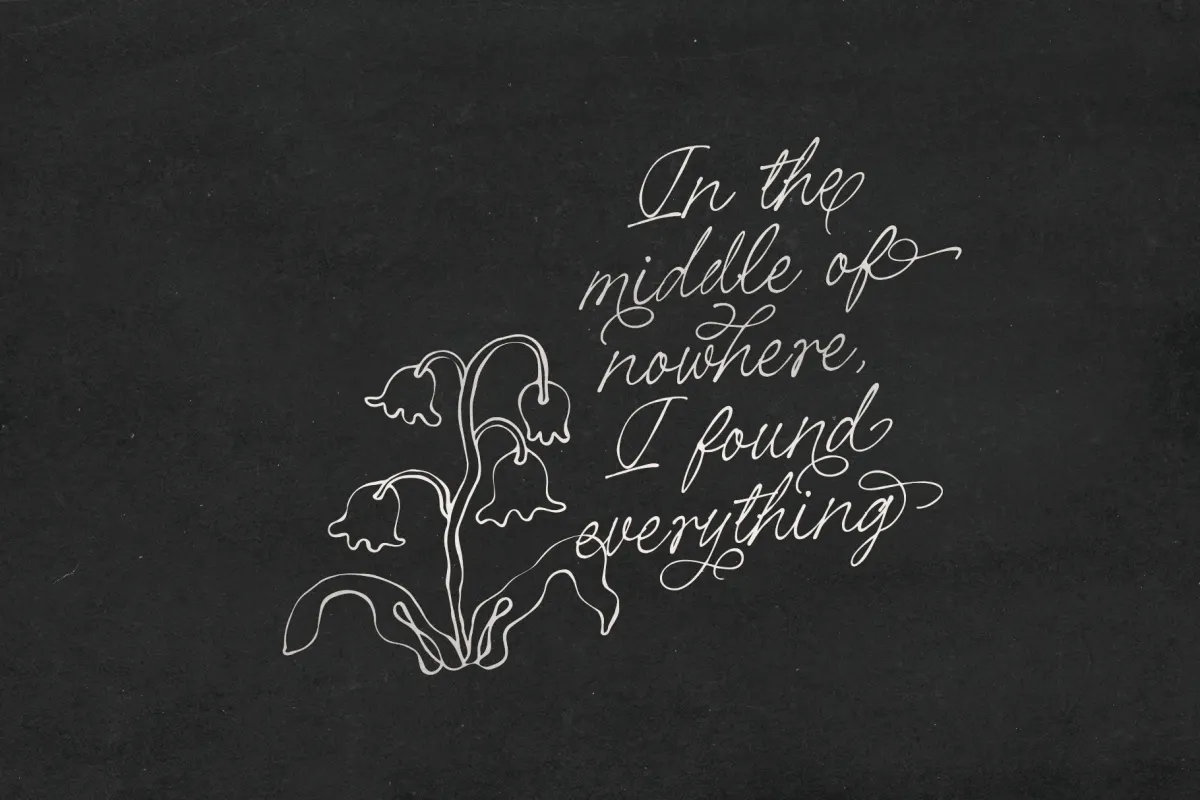 In the
middle of
nowhere,
I found
everything